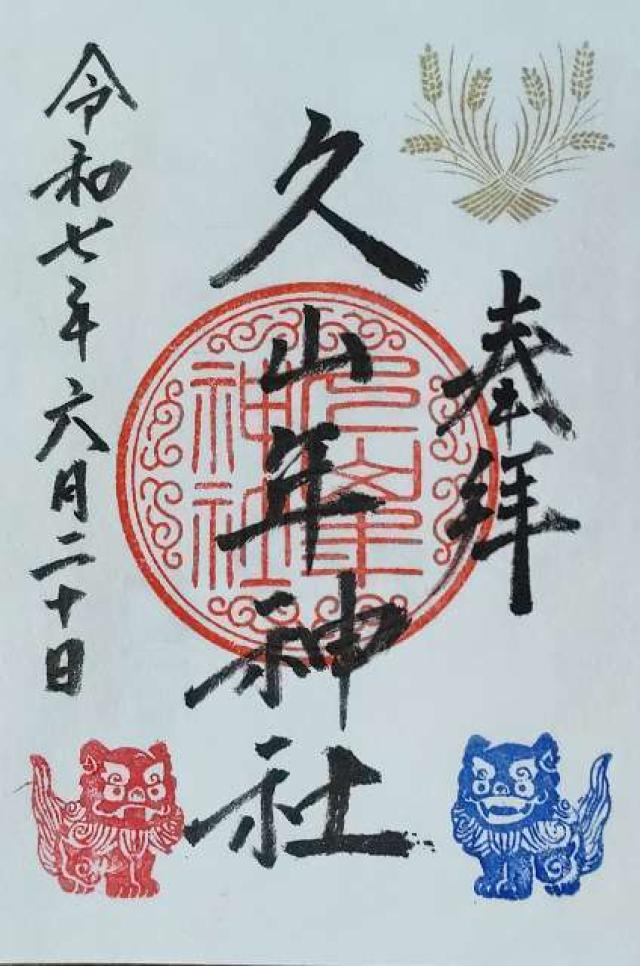 奉拝
久山年神社
久山年神社
令和七年六月二十日